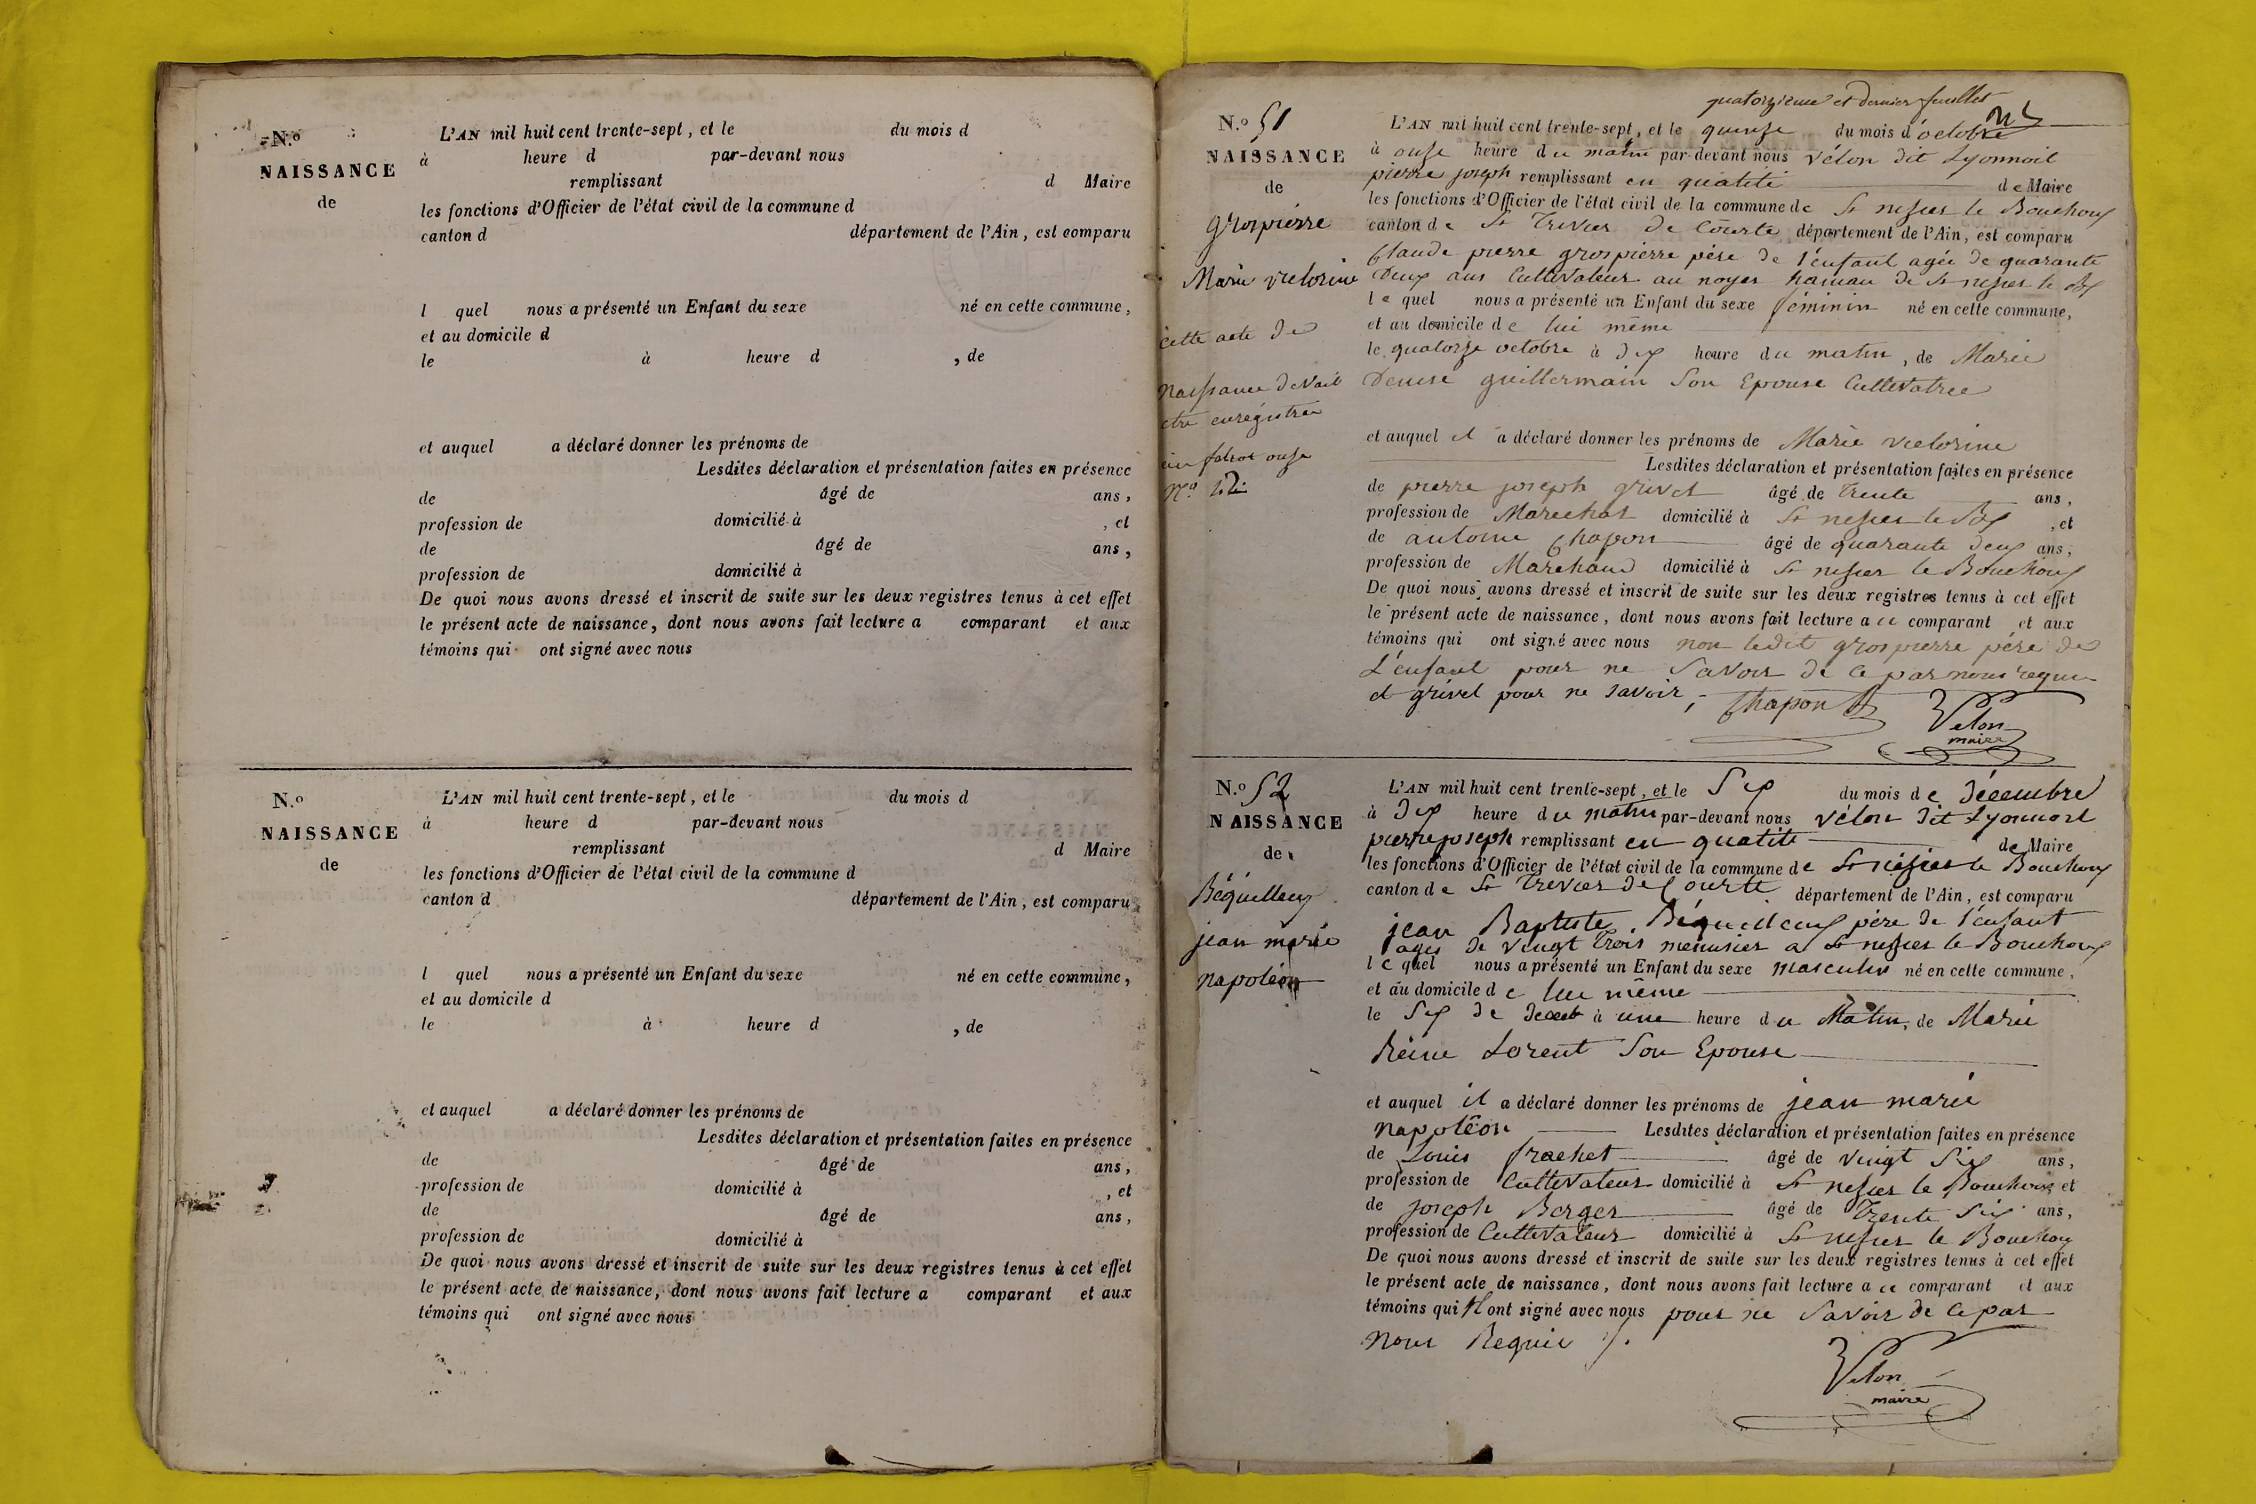 N.o
NAISSANCE
de
L'AN mil huit cent trente-sept, et le du mois d
à heure d par-devant nous
remplissant d Maire
les fonctions d'Officier de l'état civil de la commune d
canton d département de l'Ain, est comparu
l quel nous a présenté un Enfant du sexe né en cette commune,
et au domicile d
le à heure d , de
et auquel a déclaré donner les prénoms de
Lesdites déclaration et présentation faites en présence
de âgé de ans,
profession de domicilié à , et
de âgé de ans,
profession de domicilié à
De quoi nous avons dressé et inscrit de suite sur les deux registres tenus à cet effet
le présent acte de naissance, dont nous avons fait lecture a comparant et aux
témoins qui ont signé avec nous
N.o
NAISSANCE
de
L'AN mil huit cent trente-sept, et le du mois d
à heure d par-devant nous
remplissant d Maire
les fonctions d'Officier de l'état civil de la commune d
canton d département de l'Ain, est comparu
l quel nous a présenté un Enfant du sexe né en cette commune,
et au domicile d
le à heure d , de
et auquel a déclaré donner les prénoms de
Lesdites déclaration et présentation faites en présence
de âgé de ans,
profession de domicilié à , et
de âgé de ans,
profession de domicilié à
De quoi nous avons dressé et inscrit de suite sur les deux registres tenus à cet effet
le présent acte de naissance, dont nous avons fait lecture a comparant et aux
témoins qui ont signé avec nous
quatorzieme et dernier feuillet
N.o 51
NAISSANCE
de
grospierre
Marie victorine
cette acte de
naissance devait
etre enregistrée
au folio onze
L'AN mil huit cent trente-sept, et le quinze du mois d'octobre
à onze heure du matin par-devant nous vélon dit Lyonnoit
pierre joseph remplissant en qualité de Maire
les fonctions d'Officier de l'état civil de la commune de St nesier le Bouchoux
canton de St Trivier de Courte département de l'Ain, est comparu
Claude pierre grospierre père de l'enfant agée de quarante
deux ans Cultivateur au noyer hameau de St nesier le Bx
le quel nous a présenté un Enfant du sexe féminin né en cette commune,
et au domicile de lui même
le quatorze octobre à dix heure du matin, de Marie
Denise guillermain son Epouse Cultivatrice
et auquel il a déclaré donner les prénoms de Marie victorine
Lesdites déclaration et présentation faites en présence
de pierre joseph grivel âgé de trente ans,
profession de Marechal domicilié à St nesier le Bx , et
de antoine Chapon âgé de quarante deux ans,
profession de Marchand domicilié à St nesier le Bouchoux
De quoi nous avons dressé et inscrit de suite sur les deux registres tenus à cet effet
le présent acte de naissance, dont nous avons fait lecture a ce comparant et aux
témoins qui ont signé avec nous non ledit grospierre père de
L'enfant pour ne savoir de ce par nous requis
et grivel pour ne savoir,
Chapon
Velon
maire
N.o 52
NAISSANCE
de
Béquilleux
jean marie
napoléon
L'AN mil huit cent trente-sept, et le Six du mois de décembre
à dix heure du matin par-devant nous vélon dit Lyonnoit
pierre joseph remplissant en qualité de Maire
les fonctions d'Officier de l'état civil de la commune de St nésier le Bouchoux
canton de St Trivier de Courte département de l'Ain, est comparu
jean Baptiste Béquilleux père de l'enfant
ages de vingt trois menusier a St nesier le Bouchoux
le quel nous a présenté un Enfant du sexe masculin né en cette commune,
et au domicile de lui même
le Six de à une heure du Matin, de Marie
Reine Lorent Son Epouse
et auquel il a déclaré donner les prénoms de jean marie
napoléon Lesdites déclaration et présentation faites en présence
de Louis frachet âgé de vingt Six ans,
profession de Cultivateur domicilié à St nesier le Bouchoux et
de joseph Berger âgé de Trente Six ans,
profession de Cultivateur domicilié à St nesier le Bouchoux
De quoi nous avons dressé et inscrit de suite sur les deux registres tenus à cet effet
le présent acte de naissance, dont nous avons fait lecture a ce comparant et aux
témoins qui n'ont signé avec nous pour ne savoir de ce par
nous Requis
Velon
maire